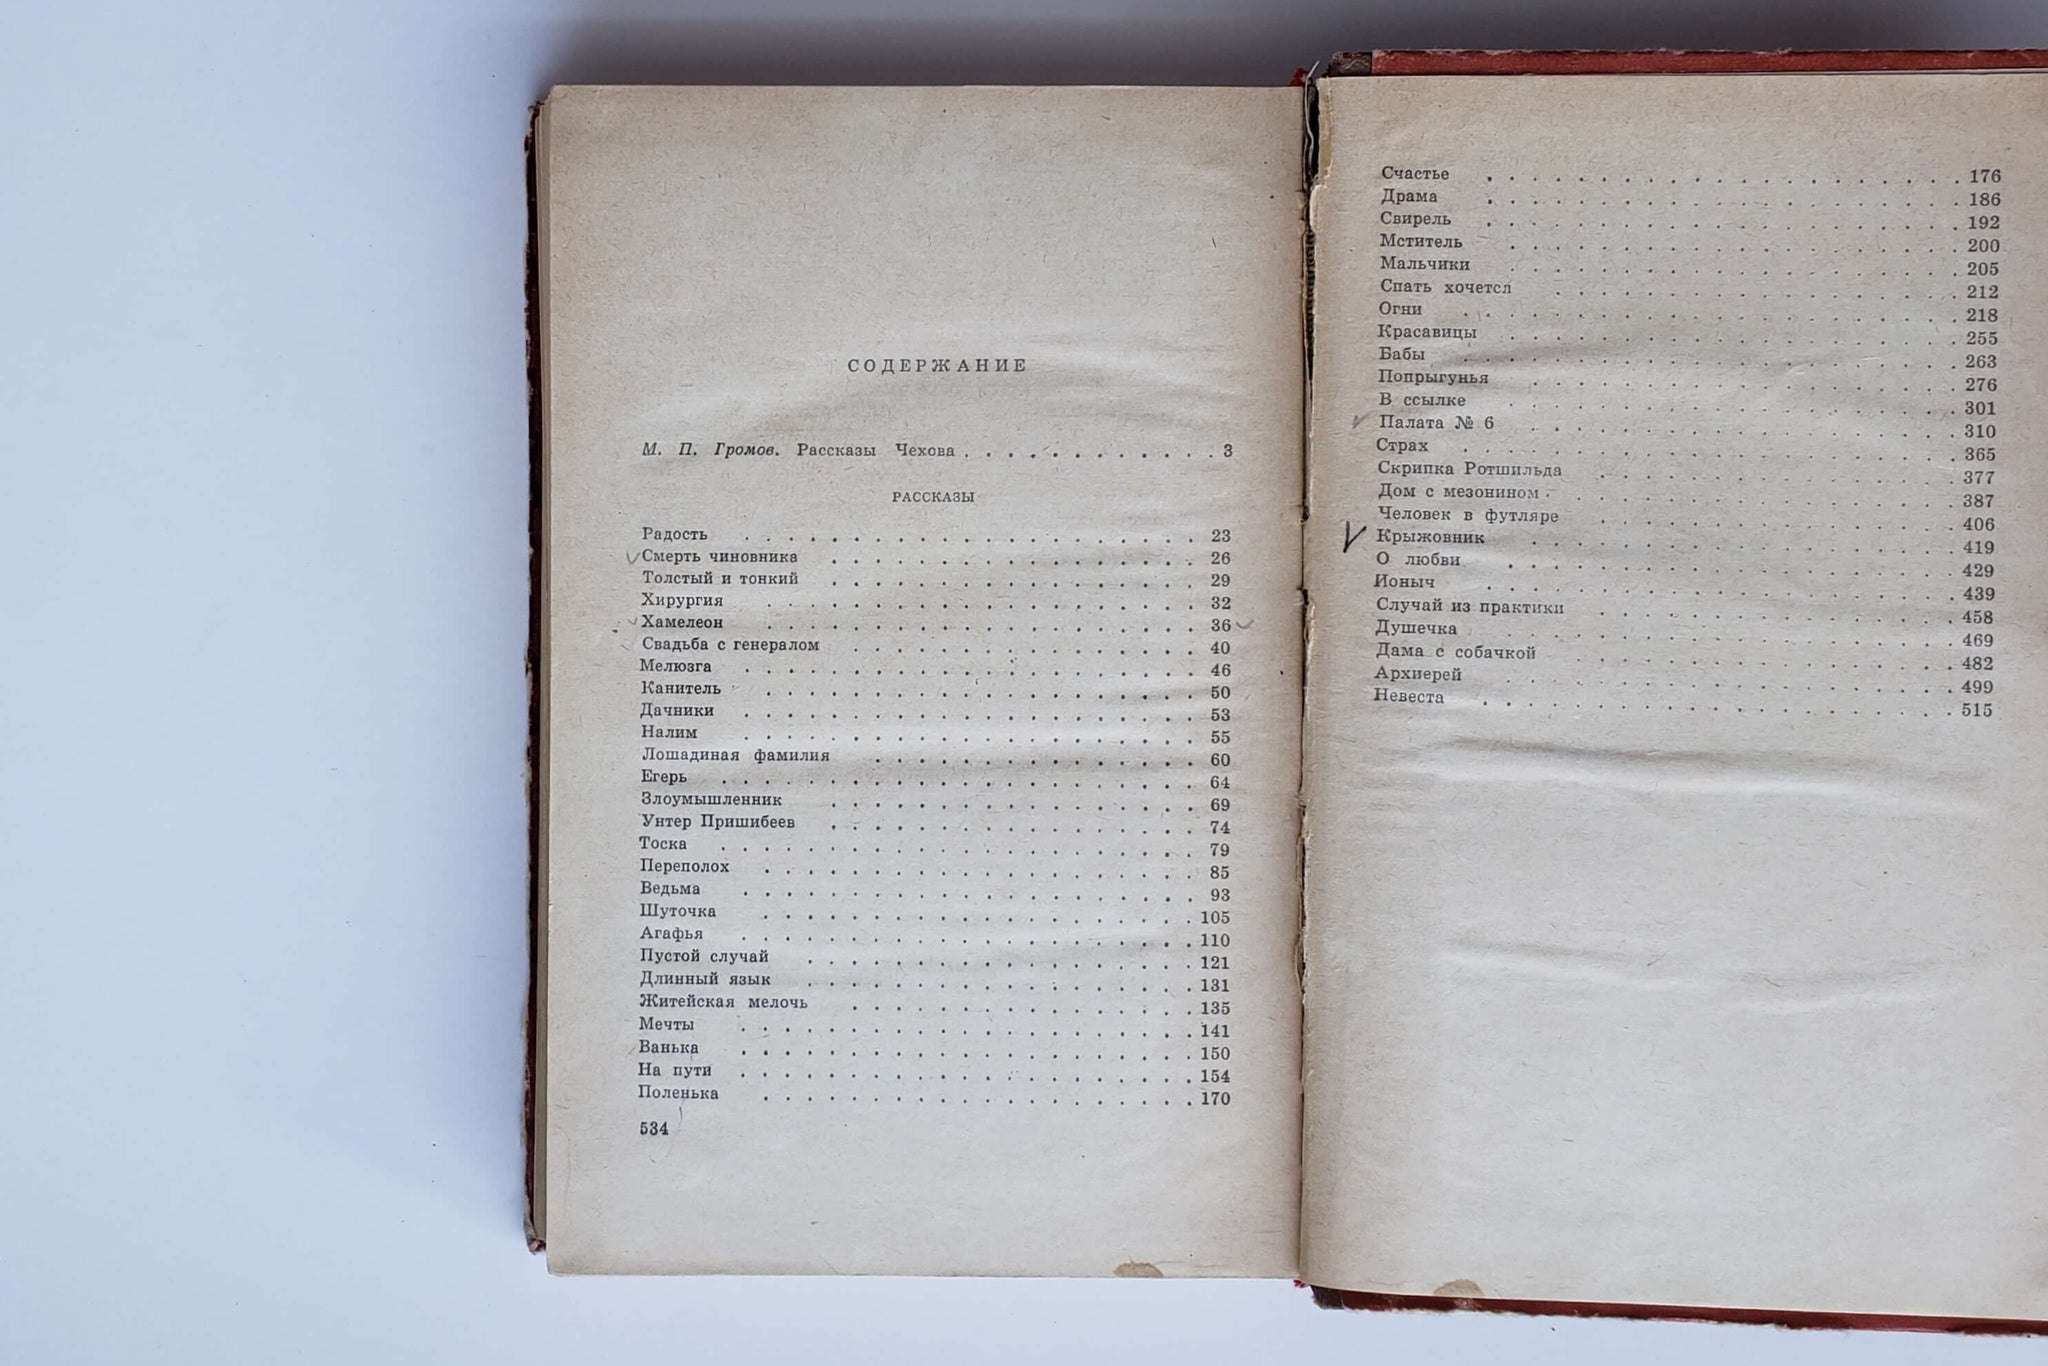 СОДЕРЖАНИЕ
М. П. Громов. Рассказы Чехова . . . . . . . . . . . . 3
РАССКАЗЫ
Радость . . . . . . . . . . . . . . . . . . . . . 23
Смерть чиновника . . . . . . . . . . . . . . . . . 26
Толстый и тонкий . . . . . . . . . . . . . . . . . 29
Хирургия . . . . . . . . . . . . . . . . . . . . 32
Хамелеон . . . . . . . . . . . . . . . . . . . . 36
Свадьба с генералом . . . . . . . . . . . . . . . . 40
Мелюзга . . . . . . . . . . . . . . . . . . . . . 46
Канитель . . . . . . . . . . . . . . . . . . . . 50
Дачники . . . . . . . . . . . . . . . . . . . . . 53
Налим . . . . . . . . . . . . . . . . . . . . . 55
Лошадиная фамилия . . . . . . . . . . . . . . . 60
Егерь . . . . . . . . . . . . . . . . . . . . . . 64
Злоумышленник . . . . . . . . . . . . . . . . . 69
Унтер Пришибеев . . . . . . . . . . . . . . . . . 74
Тоска . . . . . . . . . . . . . . . . . . . . . . 79
Переполох . . . . . . . . . . . . . . . . . . . . 85
Ведьма . . . . . . . . . . . . . . . . . . . . . 93
Шуточка . . . . . . . . . . . . . . . . . . . . 105
Агафья . . . . . . . . . . . . . . . . . . . . . 110
Пустой случай . . . . . . . . . . . . . . . . . . 121
Длинный язык . . . . . . . . . . . . . . . . . . 131
Житейская мелочь . . . . . . . . . . . . . . . . 135
Мечты . . . . . . . . . . . . . . . . . . . . . 141
Ванька . . . . . . . . . . . . . . . . . . . . . 150
На пути . . . . . . . . . . . . . . . . . . . . . 154
Поленька . . . . . . . . . . . . . . . . . . . . 170
534
Счастье . . . . . . . . . . . . . . . . . . . . . 176
Драма . . . . . . . . . . . . . . . . . . . . . 186
Свирель . . . . . . . . . . . . . . . . . . . . . 192
Мститель . . . . . . . . . . . . . . . . . . . . 200
Мальчики . . . . . . . . . . . . . . . . . . . . 205
Спать хочется . . . . . . . . . . . . . . . . . . 212
Огни . . . . . . . . . . . . . . . . . . . . . . 218
Красавицы . . . . . . . . . . . . . . . . . . . . 255
Бабы . . . . . . . . . . . . . . . . . . . . . . 263
Попрыгунья . . . . . . . . . . . . . . . . . . . 276
В ссылке . . . . . . . . . . . . . . . . . . . . 301
Палата № 6 . . . . . . . . . . . . . . . . . . . 310
Страх . . . . . . . . . . . . . . . . . . . . . . 365
Скрипка Ротшильда . . . . . . . . . . . . . . . . 377
Дом с мезонином . . . . . . . . . . . . . . . . . 387
Человек в футляре . . . . . . . . . . . . . . . . 406
Крыжовник . . . . . . . . . . . . . . . . . . . 419
О любви . . . . . . . . . . . . . . . . . . . . 429
Ионыч . . . . . . . . . . . . . . . . . . . . . 439
Случай из практики . . . . . . . . . . . . . . . . 458
Душечка . . . . . . . . . . . . . . . . . . . . 469
Дама с собачкой . . . . . . . . . . . . . . . . . 482
Архиерей . . . . . . . . . . . . . . . . . . . . 499
Невеста . . . . . . . . . . . . . . . . . . . . . 515